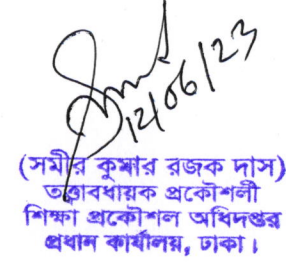 12/06/23
(সমীর কুমার রজক দাস)
তত্ত্বাবধায়ক প্রকৌশলী
শিক্ষা প্রকৌশল অধিদপ্তর
প্রধান কার্যালয়, ঢাকা।